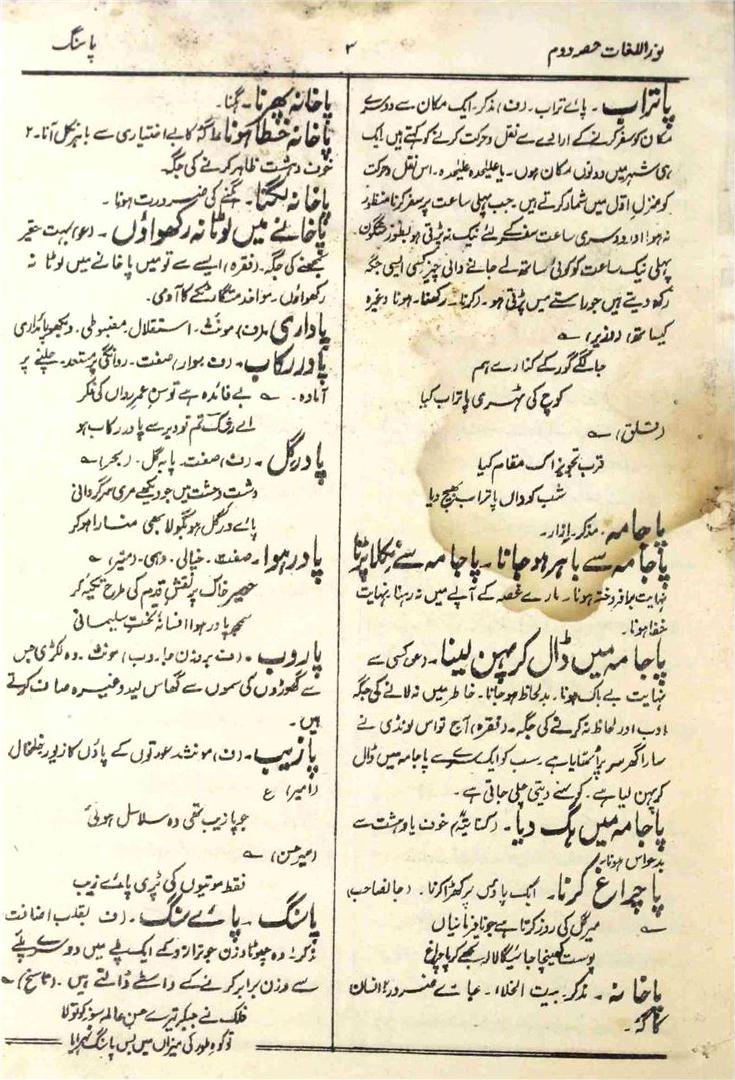 نور اللغات حصہ دوم
۳
پاسنگ
پاتراب۔ پائے تراب۔ (ف) مذکر۔ ایک مکان سے دوسرے
مکان کو سفر کرنے کے ارادے سے نقل و حرکت کرنے کو کہتے ہیں ایک
ہی شہر میں دونوں مکان ہوں۔ یا علیٰحدہ علیٰحدہ۔ اس نقل و حرکت
کو منزل اوّل میں شمار کرتے ہیں۔ جب پہلی ساعت پر سفر کرنا منظور
نہ ہو اور دوسری ساعت سفر کے لئے نیک نہ پڑتی ہو بطور شگون
پہلی نیک ساعت کو کوئی ساتھ لے جانے والی چیز کسی ایسی جگہ
رکھ دیتے ہیں جو راستے میں پڑتی ہو۔ (کرنا۔ رکھنا۔ ہونا وغیرہ
کیساتھ) (وزیر) ؎
جا لگے گور کے کنارے ہم
کوچ کی ٹھہری پاتراب کیا
(قلق) ؎
قرب تجویز اک مقام کیا
شب کو واں پاتراب بھیج دیا
پاجامہ۔ مذکر۔ اِزار۔
پاجامہ سے باہر ہو جانا۔ پاجامہ سے نکلا پڑنا
نہایت برافروختہ ہونا۔ مارے غصہ کے آپے میں نہ رہنا نہایت
خفا ہونا۔
پاجامہ میں ڈال کر پہن لینا۔ (عو) کسی سے
نہایت بے باک ہونا۔ بدلحاظ ہو جانا۔ خاطر میں نہ لانے کی جگہ
ادب اور لحاظ نہ کرنے کی جگہ۔ (فقرہ) آج تو اس لونڈی نے
سارا گھر سر پر اُٹھایا ہے۔ سب کو ایک سرے سے پاجامہ میں ڈال
کر پہن لیا ہے۔ کوسنے دیتی چلی جاتی ہے۔
پاجامہ میں ہگ دیا۔ (کنایۃً) خوف یا دہشت سے
بدحواس ہونا۔
پا چراغ کرنا۔ ایک پاؤں پر کھڑا کرنا۔ (جانصاحب)
؎ میر گل کی روز کرتا ہے جو نافرمانیاں
پوست کھینچا جائیگا لالہ تجھے کر پا چراغ
پاخانہ۔ مذکر۔ بیت الخلا۔ ۲۔ جائے ضرور۔ ۳۔ انسان
کا گُہ۔
پاخانہ پھرنا۔ ہگنا۔
پاخانہ خطا ہونا۔ گُہ کا بے اختیاری سے باہر نکل آنا۔ ۲
خوف و دہشت ظاہر کرنے کی جگہ۔
پاخانہ لگنا۔ ہگنے کی ضرورت ہونا۔
پاخانے میں لوٹا نہ رکھواؤں۔ (عو) بہت حقیر
سمجھنے کی جگہ۔ (فقرہ) ایسے سے تو میں پاخانے میں لوٹا نہ
رکھواؤں۔ موا خدمتگار ٹکے کا آدمی۔
پاداری۔ (ف) مونث۔ استقلال۔ مضبوطی۔ دیکھو پائداری
پادر رکاب۔ (ف) سوار) صفت۔ روانگی پر مستعد۔ چلنے پر
آمادہ۔ ؎ بے فائدہ ہے توسنِ عمرِ رواں کی فکر
اے رشک تم تو دیر سے پا در رکاب ہو
پادر گل۔ (ف) صفت۔ پا بہ گل۔ (بحر) ؎
دشت وحشت میں جو دیکھے مری سرگردانی
پائے در گل ہو بگولا بھی منارا ہو کر
پادر ہوا۔ صفت۔ خیالی۔ وہمی۔ (منیر) ؎
حصیرِ خاک پر نقشِ قدم کی طرح تکیہ کر
سمجھ پادر ہوا افسانۂ تختِ سلیمانی
پاروب۔ (ف بر وزن جاروب) مونث۔ وہ لکڑی جس
سے گھوڑوں کی سموں سے گھاس لید وغیرہ صاف کرتے
ہیں۔
پازیب۔ (ف) مونث۔ عورتوں کے پاؤں کا زیور۔ خلخال
(امیر) ع
جو پازیب تھی وہ سلاسل ہوئی
(میر حسن) ؎
فقط موتیوں کی پڑی پائے زیب
پاسنگ۔ پائے سنگ۔ (ف بقلب اضافت
مذکر۔ وہ چھوٹا وزن جو ترازو کے ایک پلّے میں دوسرے پلّے
سے وزن برابر کرنے کے واسطے ڈالتے ہیں۔ (ناسخ) ؎
فلک نے جبکہ تیرے حسنِ عالم سوز کو تولا
تو کوہِ طور کی میزاں میں بس پاسنگ ٹھہرایا